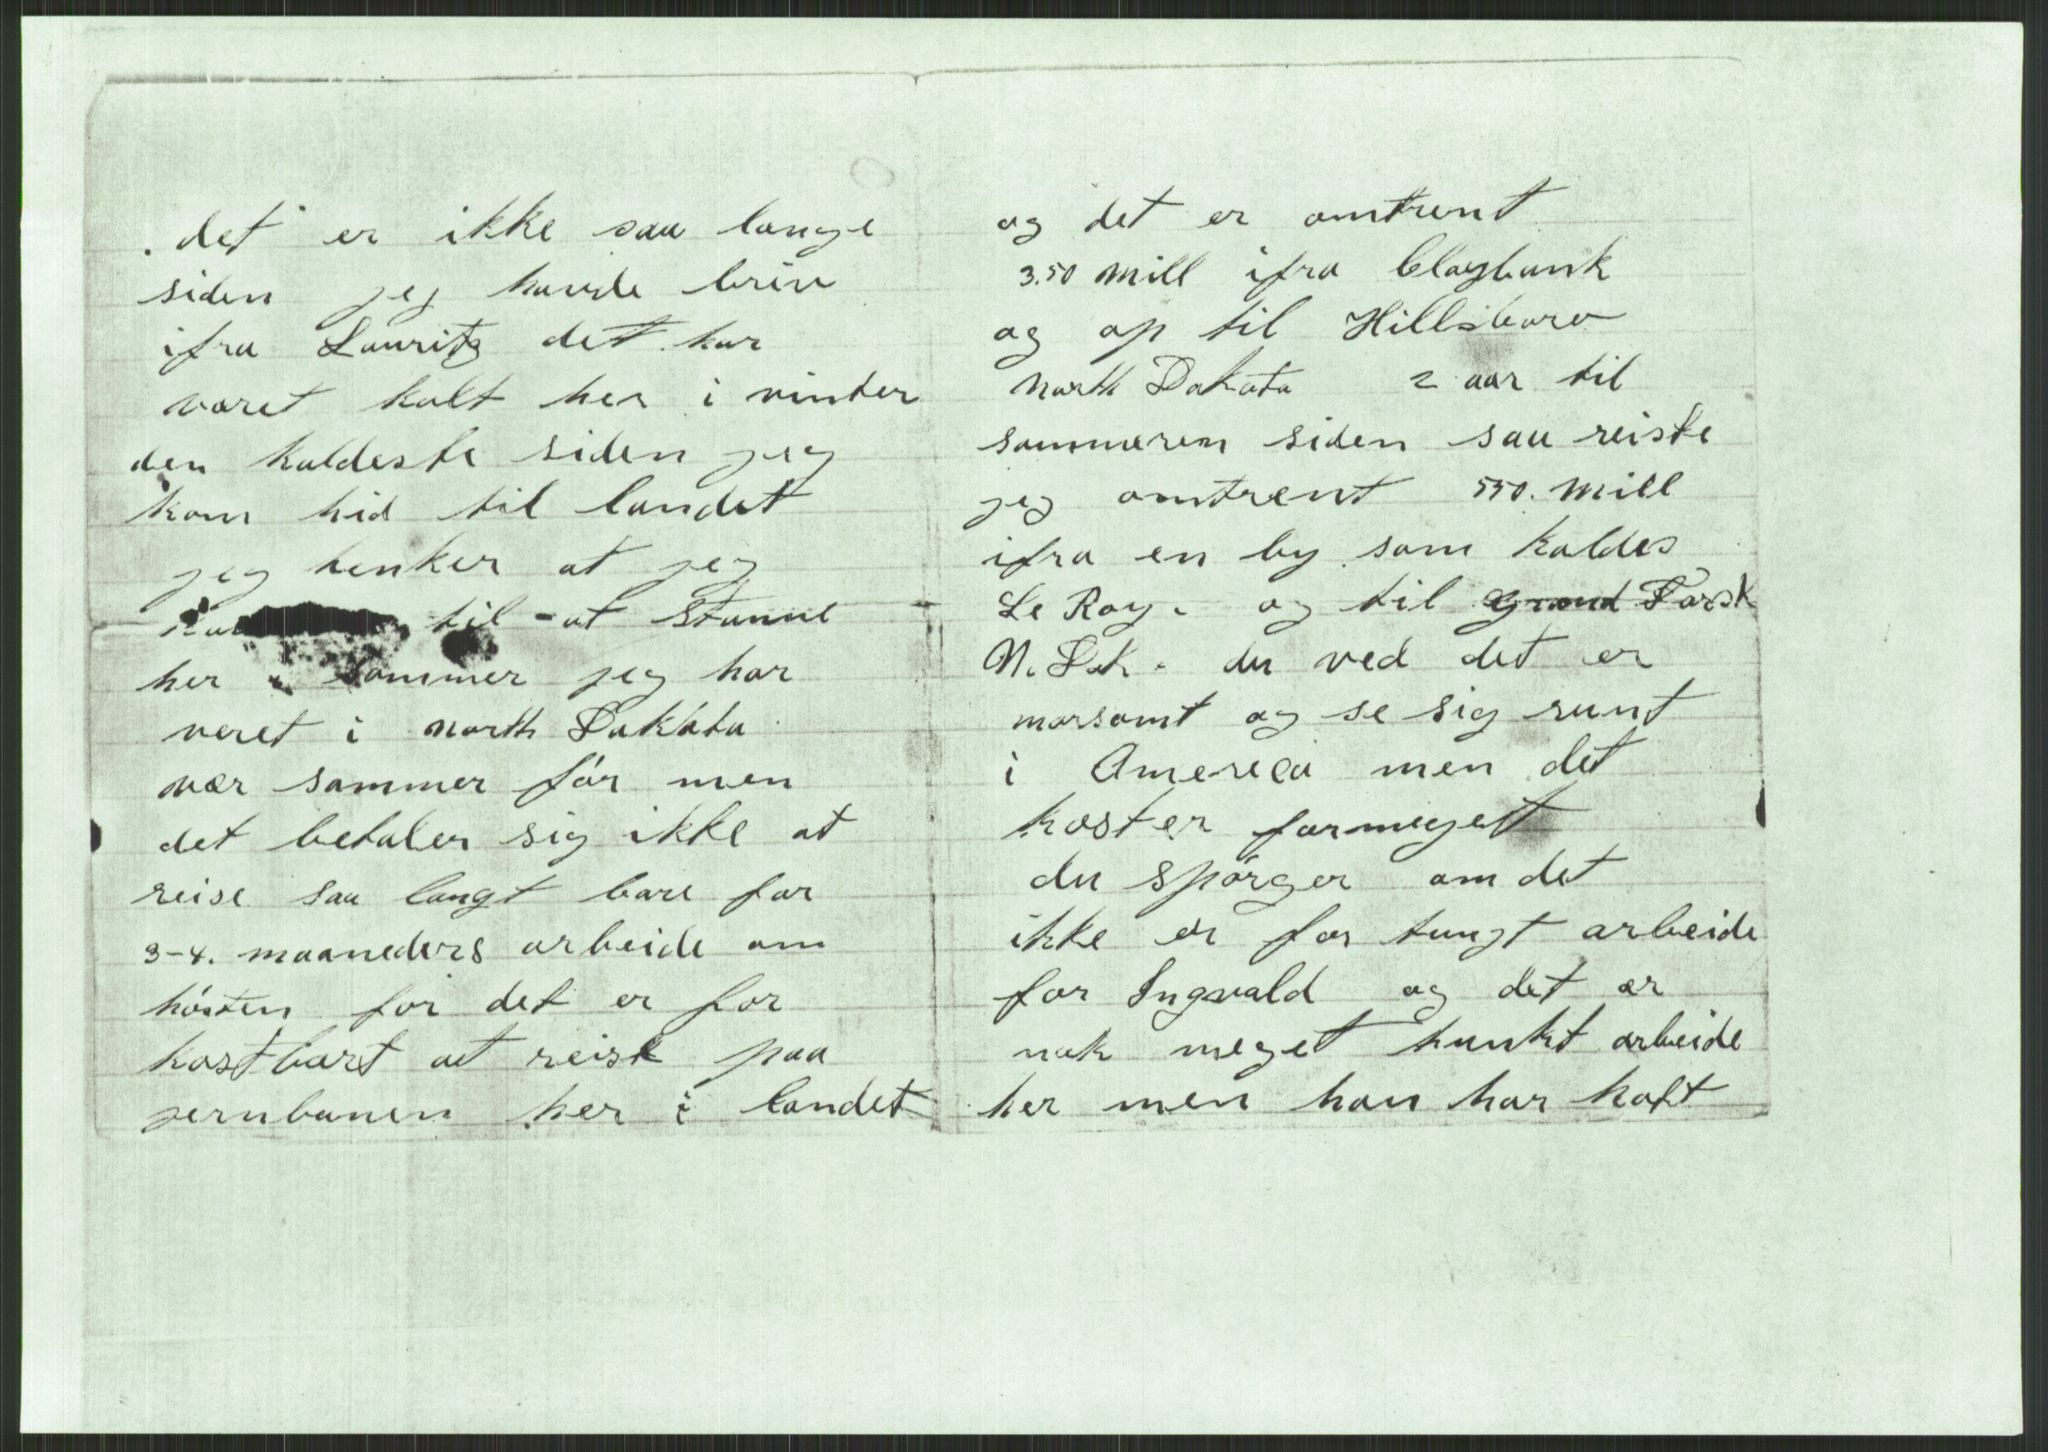 det er ikke saa lange
siden jeg havde briv
ifra Lauritz det har
været kalt her i vinter
den kaldeste siden jeg
kom hid til landet
jeg tenker at jeg
til at stanne
her i sommer jeg har
veret i North Dakota
vær sommer før men
det betaler sig ikke at
reise saa langt bare for
3-4. maaneders arbeide om
hösten for det er for
kostbart at reise paa
jernbanen her i landet
og det er omtrent
3.50 mill ifra Claybank
og op til Hillsboro
North Dakota 2 aar til
sommeren siden saa reiste
jeg omtrent 550. mill
ifra en by som kaldes
Le Roy. og til Grand Forsk
N. Dak. du ved det er
morsomt og se sig runt
i America men det
koster formeget
du spörger om det
ikke er for tungt arbeide
for Ingvald og det er
nok meget hunkt arbeide
her men han har haft